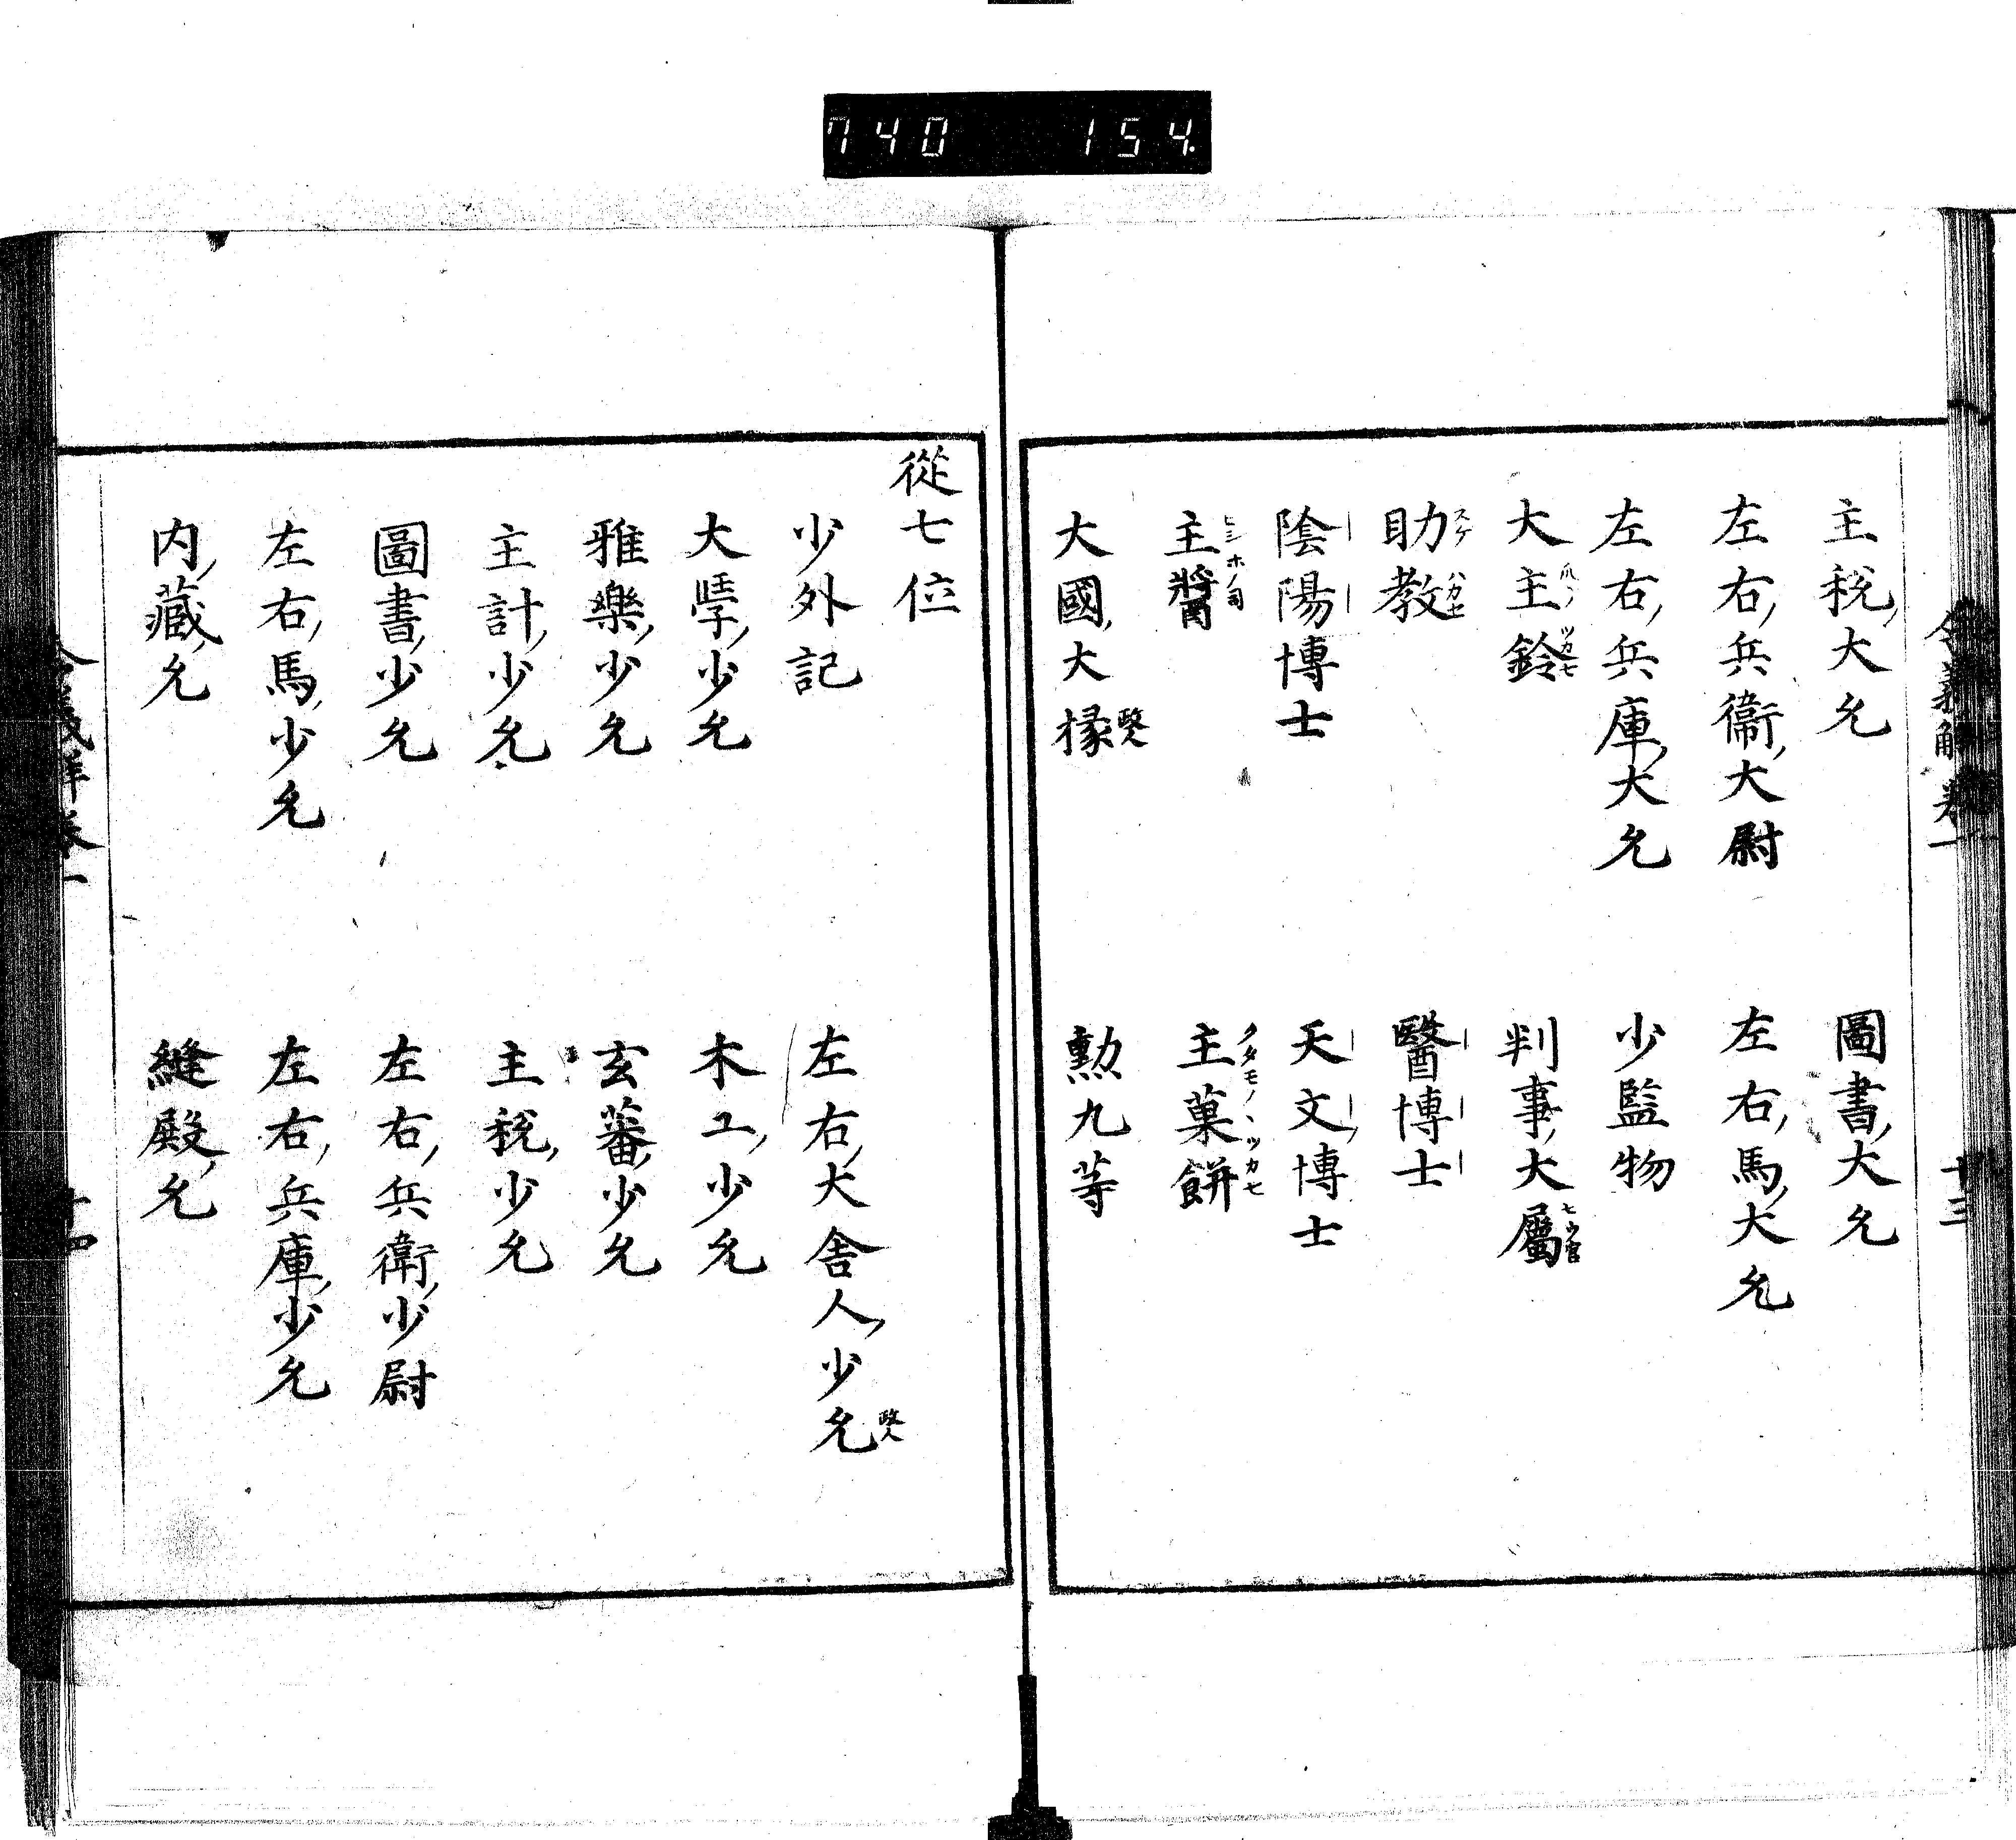 740 154.
令義解卷一 十三
主税大允 圖書大允
左右兵衞大尉 左右馬大允
左右兵庫大允 少監物
大主鈴 判事大屬
助教 醫博士
陰陽博士 天文博士
主醬 主菓餅
大國大掾 勲九等
從七位
少外記 左右大舎人少允
大學少允 木工少允
雅樂少允 玄蕃少允
主計少允 主税少允
圖書少允 左右兵衛少尉
左右馬少允 左右兵庫少允
内藏允 縫殿允